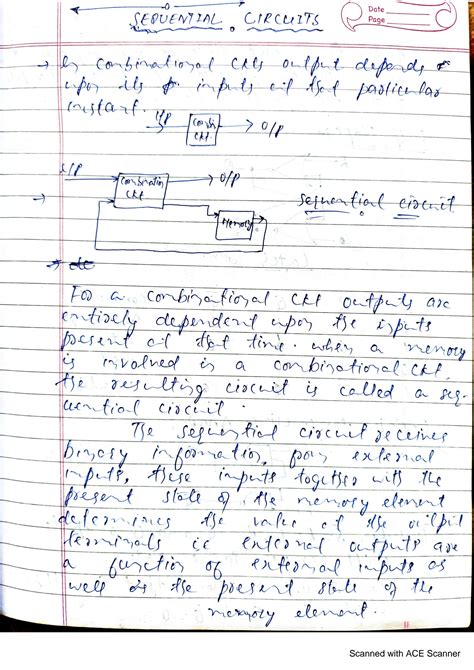 SEQUENTIAL CIRCUITS
Date
Page
→ In combinational CKts output depends
upon its inputs at that particular
instant.
I/P
Combin
CKt
→ O/P
I/P
Combination
CKt
→ O/P
Memory
sequential circuit
→
For a combinational CKt outputs are
entirely dependent upon the inputs
present at that time. when a memory
is involved in a combinational CKt,
the resulting circuit is called a seq-
uential circuit.
The sequential circuit receives
binary information from external
inputs, these inputs together with the
present state of the memory element
determines the value of the output
terminals ie external outputs are
a function of external inputs as
well as the present state of the
memory element.
Scanned with ACE Scanner